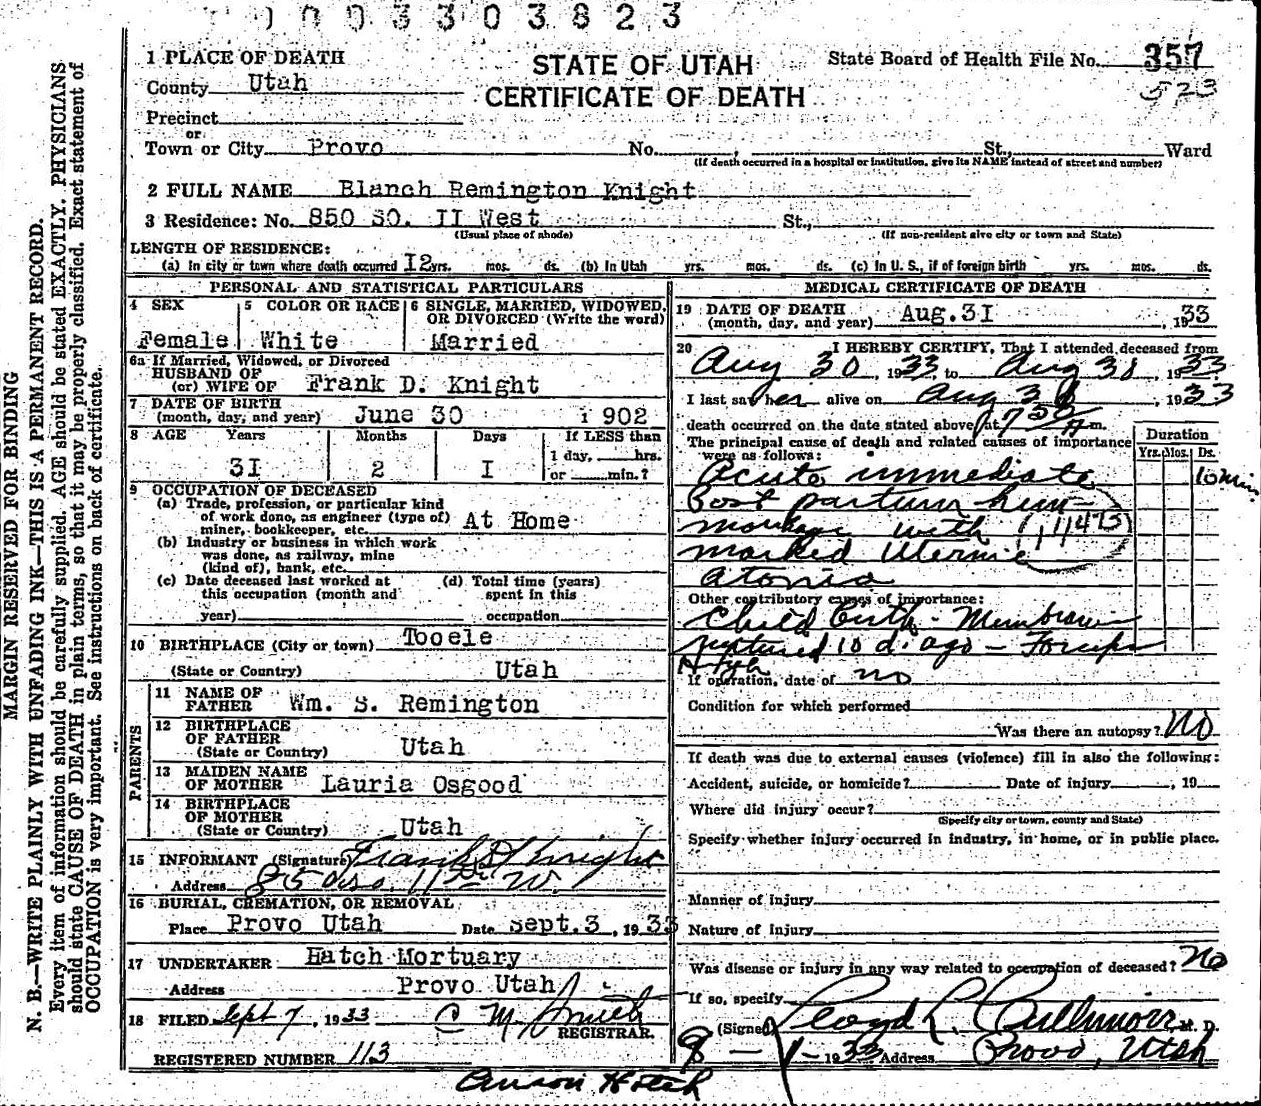 0003303823
MARGIN RESERVED FOR BINDING
N. B.—WRITE PLAINLY WITH UNFADING INK—THIS IS A PERMANENT RECORD.
Every item of information should be carefully supplied. AGE should be stated EXACTLY. PHYSICIANS
should state CAUSE OF DEATH in plain terms, so that it may be properly classified. Exact statement of
OCCUPATION is very important. See instructions on back of certificate.
STATE OF UTAH
CERTIFICATE OF DEATH
State Board of Health File No. 357
523
1 PLACE OF DEATH
County Utah
Precinct
or
Town or City Provo No. , St., Ward
(If death occurred in a hospital or institution, give its NAME instead of street and number)
2 FULL NAME Blanch Remington Knight
3 Residence: No. 850 SO. II West St.,
(Usual place of abode) (If non-resident give city or town and State)
LENGTH OF RESIDENCE:
(a) In city or town where death occurred I2 yrs. mos. ds. (b) In Utah yrs. mos. ds. (c) In U. S., if of foreign birth yrs. mos. ds.
PERSONAL AND STATISTICAL PARTICULARS
4 SEX 5 COLOR OR RACE 6 SINGLE, MARRIED, WIDOWED,
OR DIVORCED (Write the word)
Female White Married
6a If Married, Widowed, or Divorced
HUSBAND OF
(or) WIFE OF Frank D. Knight
7 DATE OF BIRTH
(month, day, and year) June 30 1902
8 AGE Years Months Days If LESS than
1 day, hrs.
3I 2 I or min.?
9 OCCUPATION OF DECEASED
(a) Trade, profession, or particular kind
of work done, as engineer (type of)
miner, bookkeeper, etc. At Home
(b) Industry or business in which work
was done, as railway, mine
(kind of), bank, etc.
(c) Date deceased last worked at (d) Total time (years)
this occupation (month and spent in this
year) occupation
10 BIRTHPLACE (City or town) Tooele
(State or Country) Utah
PARENTS
11 NAME OF
FATHER Wm. S. Remington
12 BIRTHPLACE
OF FATHER
(State or Country) Utah
13 MAIDEN NAME
OF MOTHER Lauria Osgood
14 BIRTHPLACE
OF MOTHER
(State or Country) Utah
15 INFORMANT (Signature) Frank D Knight
Address 850 so. 11th W.
16 BURIAL, CREMATION, OR REMOVAL
Place Provo Utah Date Sept.3, 1933
17 UNDERTAKER Hatch Mortuary
Address Provo Utah
18 FILED Sept 7, 1933 C M Smith
REGISTRAR.
REGISTERED NUMBER 113
MEDICAL CERTIFICATE OF DEATH
19 DATE OF DEATH
(month, day, and year) Aug.3I, 1933
20 I HEREBY CERTIFY, That I attended deceased from
Aug 30, 1933 to Aug 31, 1933
I last saw her alive on Aug 31, 1933
death occurred on the date stated above, at 7 A m.
The principal cause of death and related causes of importance
were as follows:
Duration
Yrs. Mos. Ds.
Acute immediate 10 min
Post partum hem-
morhage with
marked Uterine
atonia
Other contributory causes of importance:
Child Birth - Membranes
ruptured 10 d. ago - Forceps
If operation, date of no
Condition for which performed
Was there an autopsy? No
If death was due to external causes (violence) fill in also the following:
Accident, suicide, or homicide? Date of injury , 19
Where did injury occur?
(Specify city or town, county and State)
Specify whether injury occurred in industry, in home, or in public place.
Manner of Injury
Nature of Injury
Was disease or injury in any way related to occupation of deceased? No
If so, specify
(Signed) Lloyd L. Cullimore M. D.
9 - 1 - 1933 Address Provo, Utah
Anson Hatch